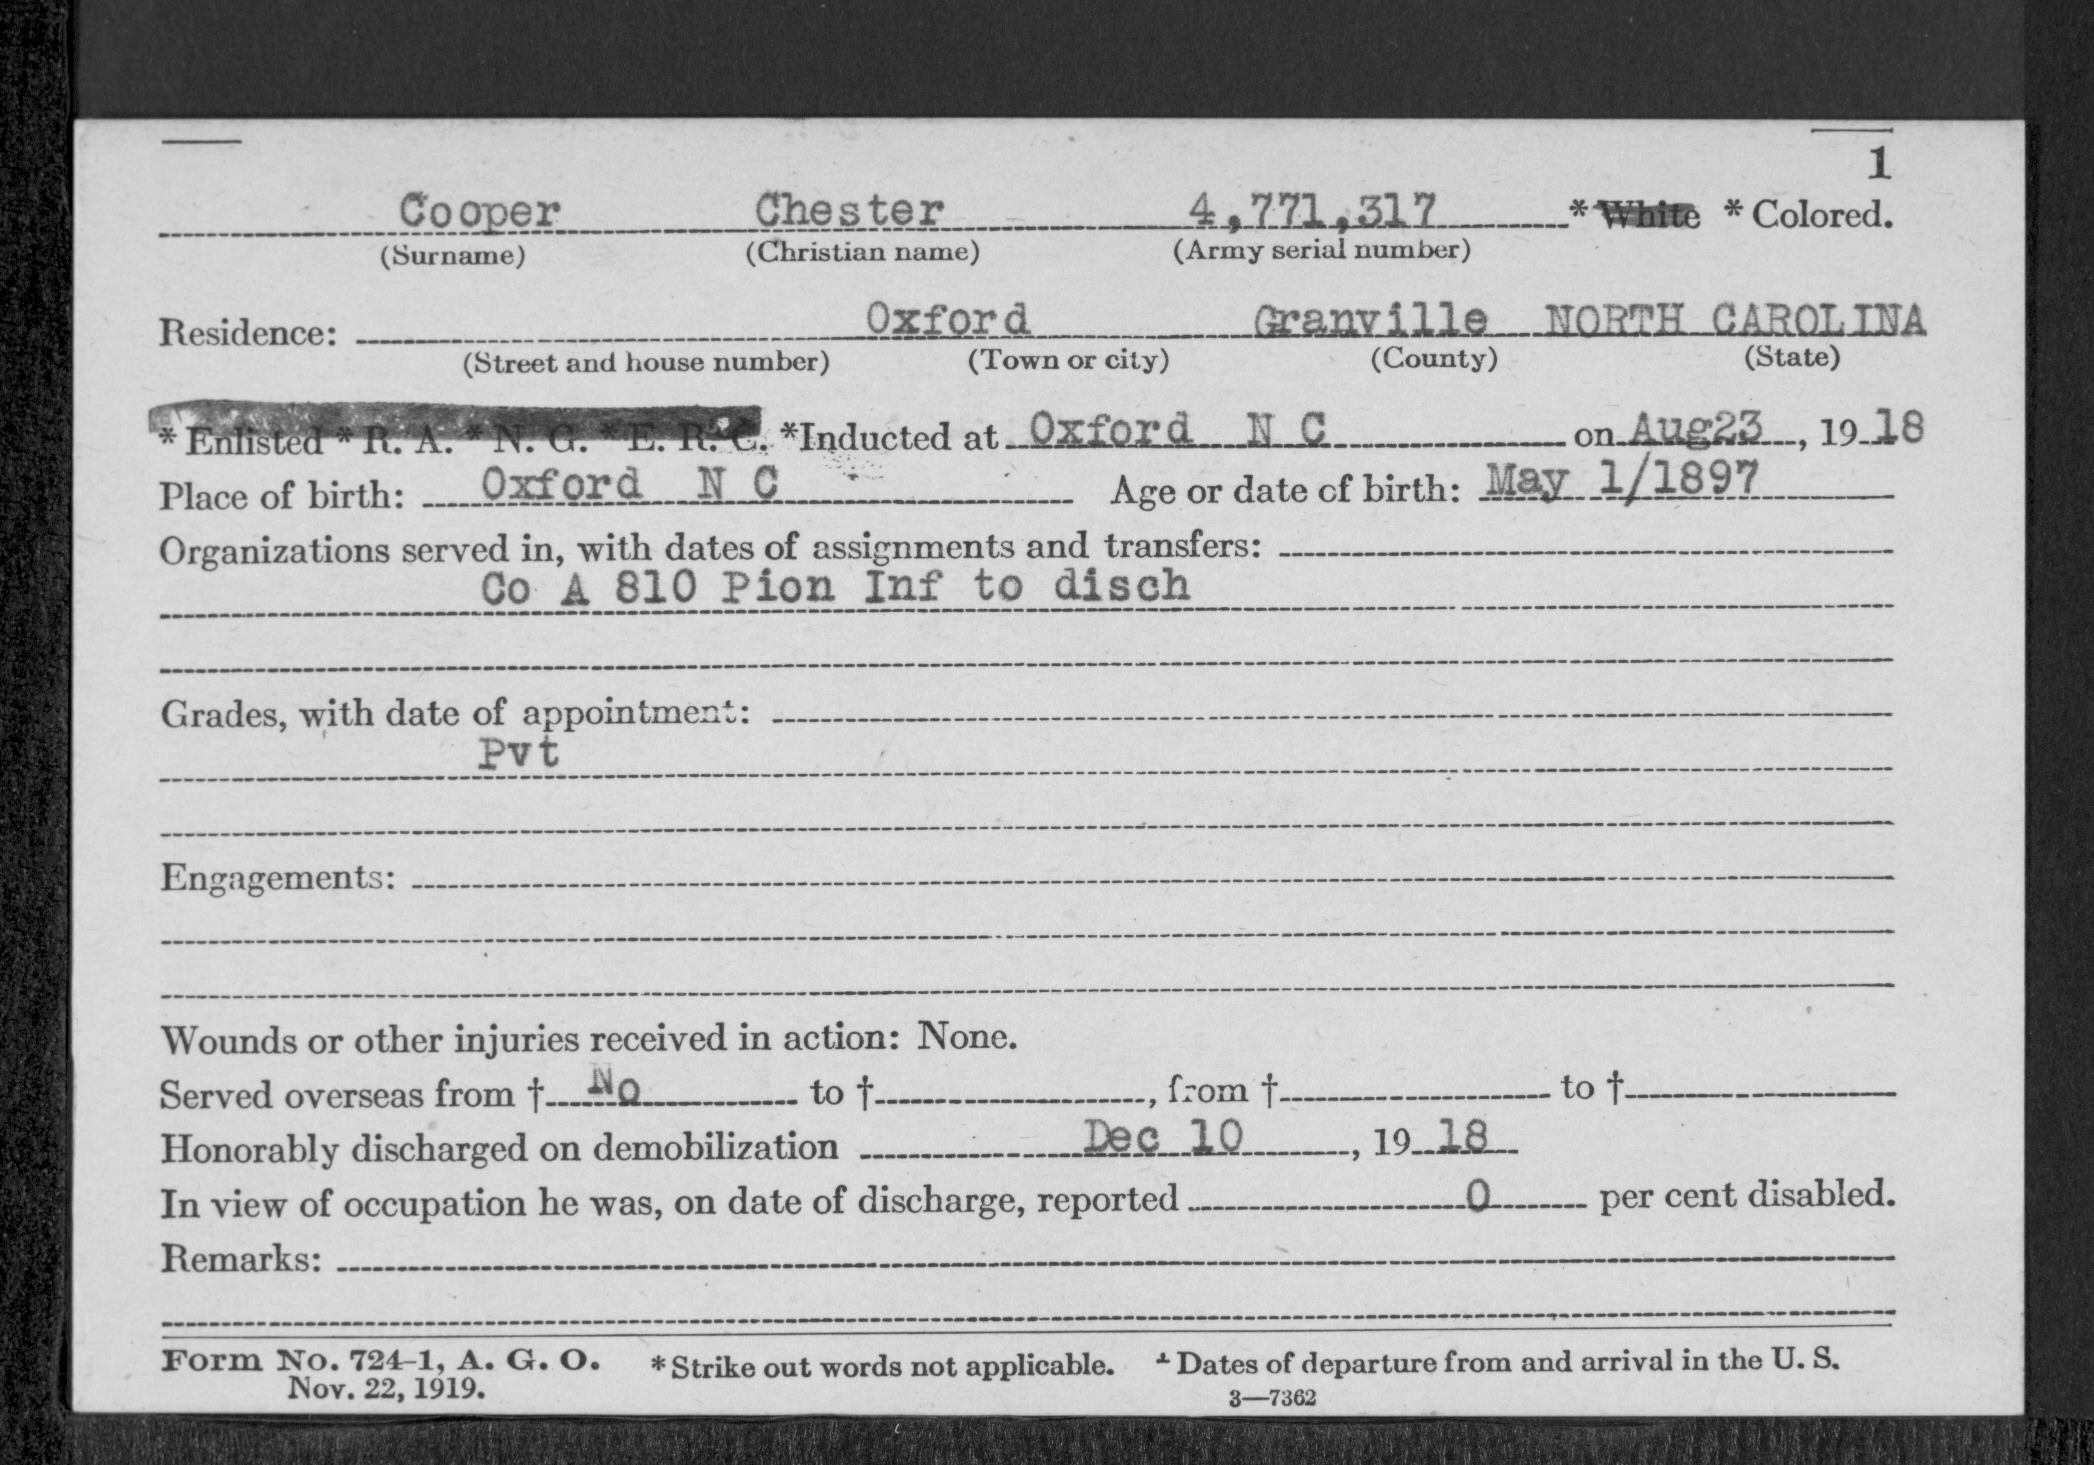 1
Cooper Chester 4,771,317 * White * Colored.
(Surname) (Christian name) (Army serial number)
Residence: Oxford Granville NORTH CAROLINA
(Street and house number) (Town or city) (County) (State)
* Enlisted * R. A. * N. G. * E. R. C. *Inducted at Oxford N C on Aug23, 1918
Place of birth: Oxford N C Age or date of birth: May 1/1897
Organizations served in, with dates of assignments and transfers:
Co A 810 Pion Inf to disch
Grades, with date of appointment:
Pvt
Engagements:
Wounds or other injuries received in action: None.
Served overseas from † No to †, from † to †
Honorably discharged on demobilization Dec 10, 1918
In view of occupation he was, on date of discharge, reported 0 per cent disabled.
Remarks:
Form No. 724-1, A. G. O. *Strike out words not applicable. † Dates of departure from and arrival in the U. S.
Nov. 22, 1919. 3—7362